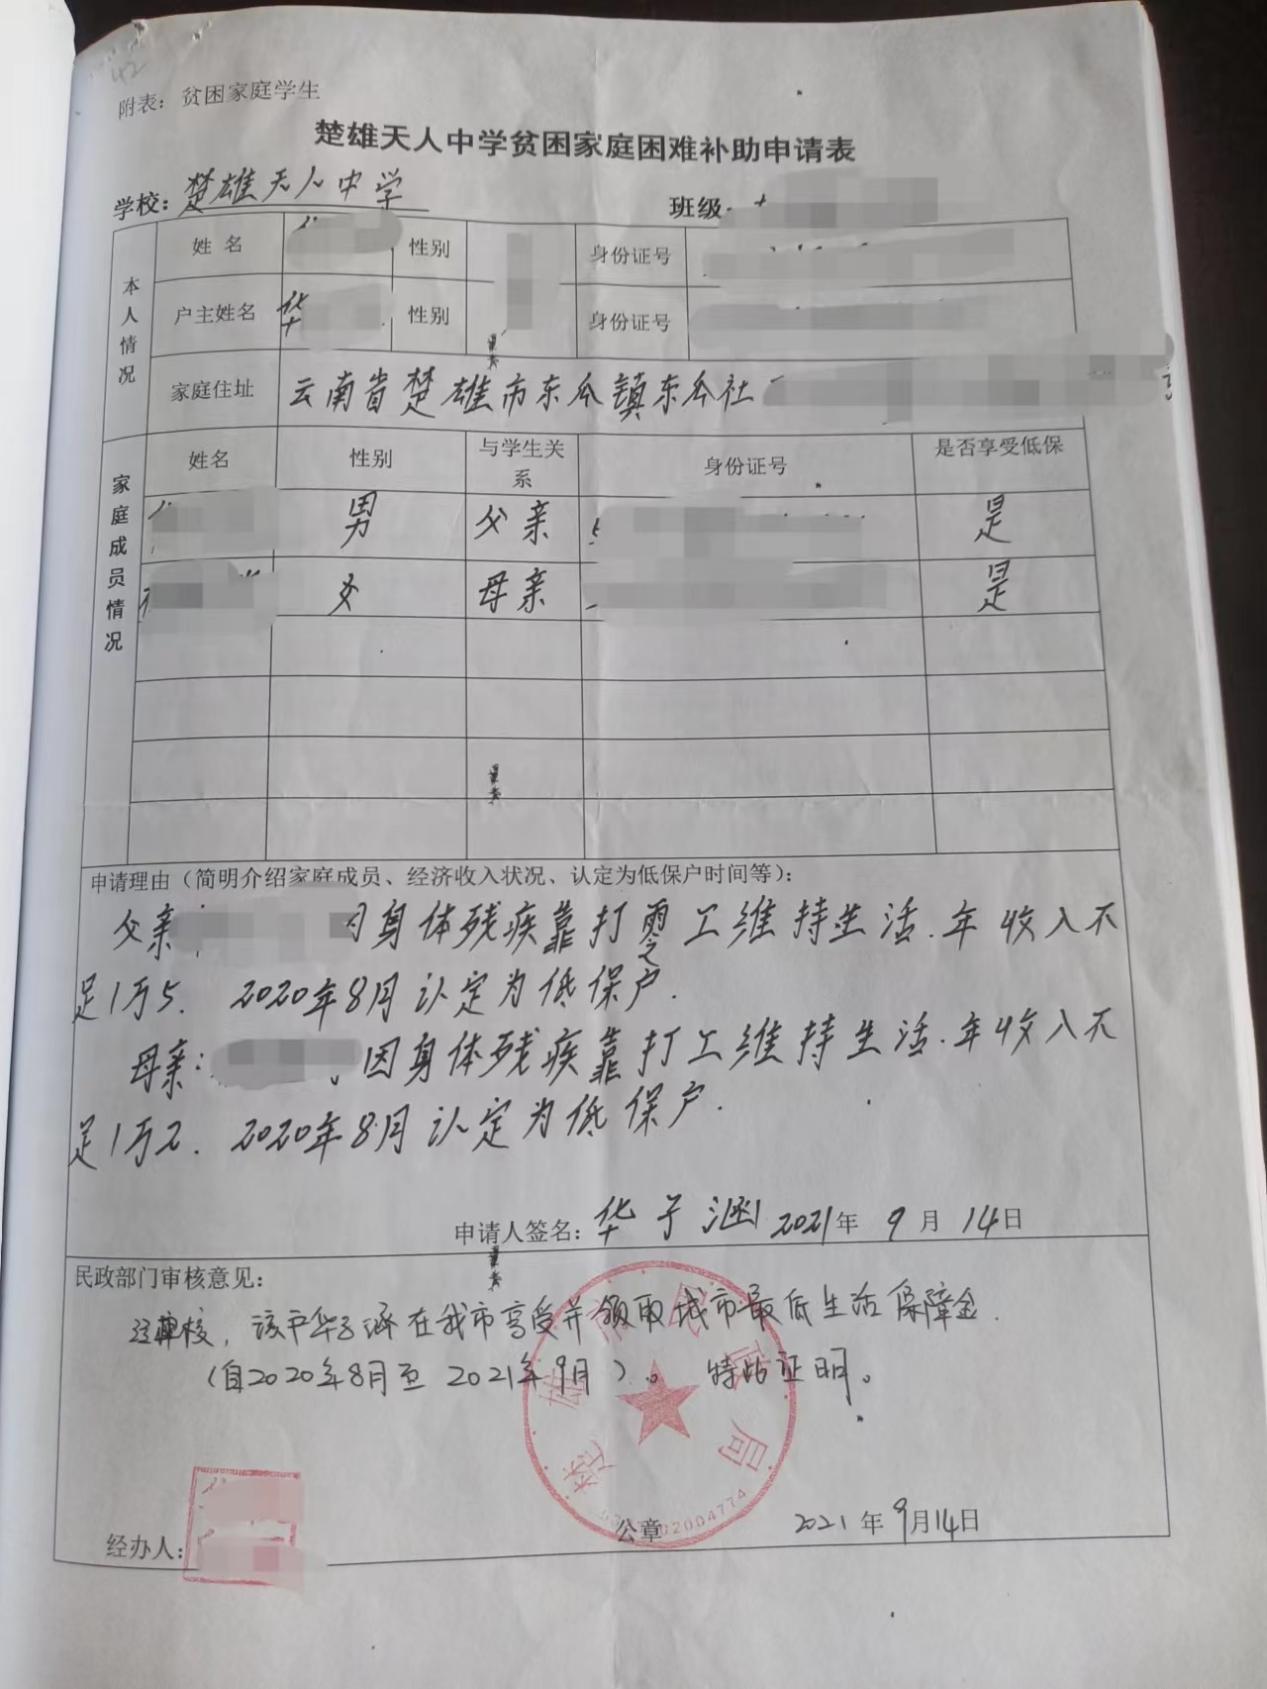 附表：贫困家庭学生
楚雄天人中学贫困家庭困难补助申请表
学校：楚雄天人中学 班级
本人情况
姓名 性别 身份证号
户主姓名 华 性别 身份证号
家庭住址 云南省楚雄市东瓜镇东瓜社
家庭成员情况
姓名 性别 与学生关系 身份证号 是否享受低保
男 父亲 是
女 母亲 是
申请理由（简明介绍家庭成员、经济收入状况、认定为低保户时间等）：
父亲： 身体残疾靠打零工维持生活.年收入不
足1万5. 2020年8月认定为低保户.
母亲： 因身体残疾靠打工维持生活.年收入不
足1万2. 2020年8月认定为低保户.
申请人签名：华子涵 2021年9月14日
民政部门审核意见：
经审核，该户华子涵在我市享受并领取城市最低生活保障金.
（自2020年8月至2021年9月）。 特此证明。
楚雄市民政局
经办人： 公章 2021年9月14日